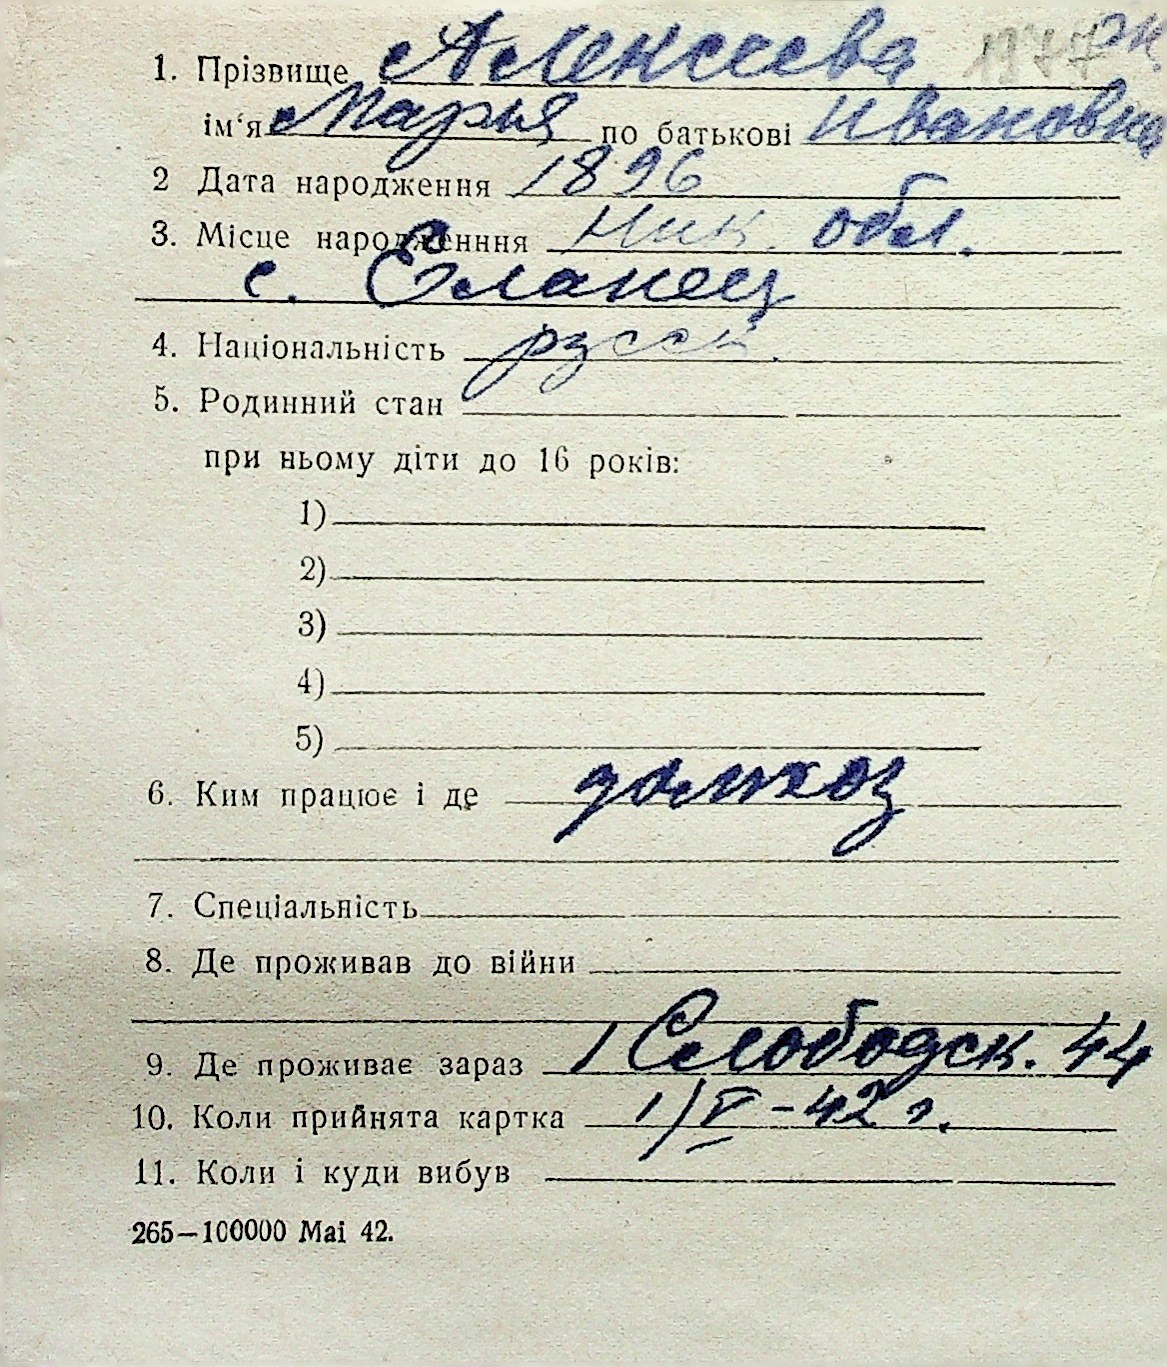 1. Прізвище Алексеева 1977 ж.
ім‘я Марья по батькові Ивановна
2 Дата народження 1896
3. Місце народженння Ник. обл.
с. Еланец
4. Національність русск.
5. Родинний стан
при ньому діти до 16 років:
1)
2)
3)
4)
5)
6. Ким працює і де домхоз
7. Спеціальність
8. Де проживав до війни
9. Де проживає зараз 1 Слободск. 44
10. Коли прийнята картка 1/V-42 г.
11. Коли і куди вибув
265—100000 Mai 42.